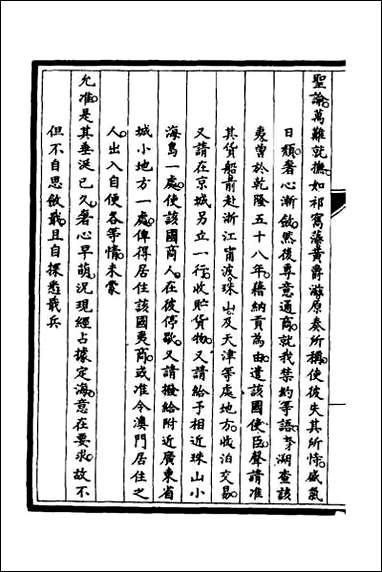 聖諭萬難就撫如祁寯藻黃爵滋原奏所稱使彼失其所恃威氣
日頹奢心漸斂然後尊意通商就我禁約等語溯查該
夷曾於乾隆五十八年藉納貢為由遣該國使臣聲請准
其貨船前赴浙江甯波珠山及天津等處地方收泊交易
又請在京城另立一行收貯貨物又請給予相近珠山小
海島一處使該國商人在彼停歇又請撥給附近廣東省
城小地方一處俾得居住該國夷商或准令澳門居住之
人出入自便各等情未蒙
允准是其垂涎已久奢心早萌況現經占據定海意在要求故不
但不自思斂戢且自探悉我兵